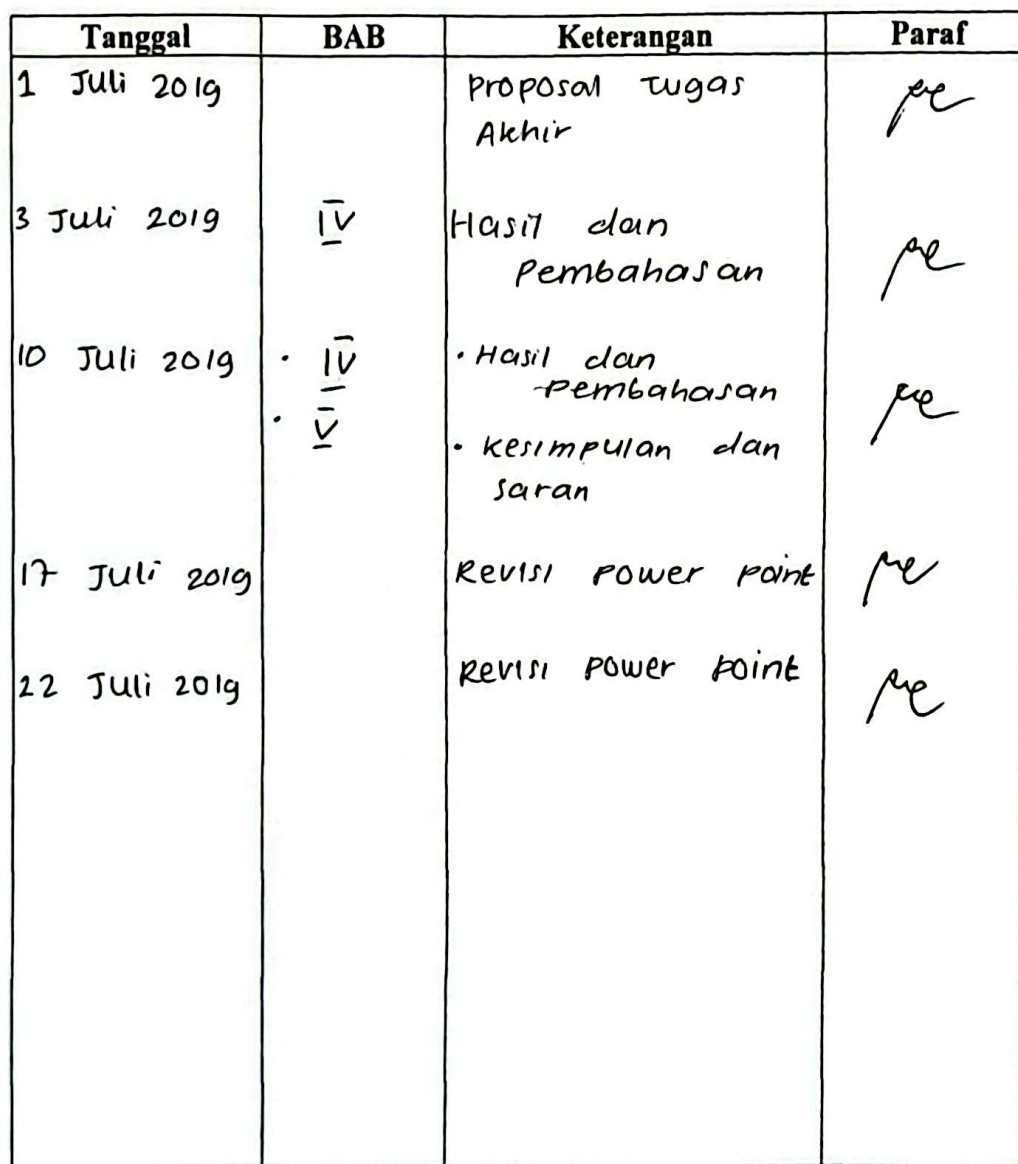 Tanggal BAB Keterangan Paraf
1 Juli 2019 Proposal Tugas
Akhir
3 Juli 2019 IV Hasil dan
Pembahasan
10 Juli 2019 · IV · Hasil dan
Pembahasan
· V
· Kesimpulan dan
Saran
17 Juli 2019 Revisi Power Point
22 Juli 2019 Revisi Power Point